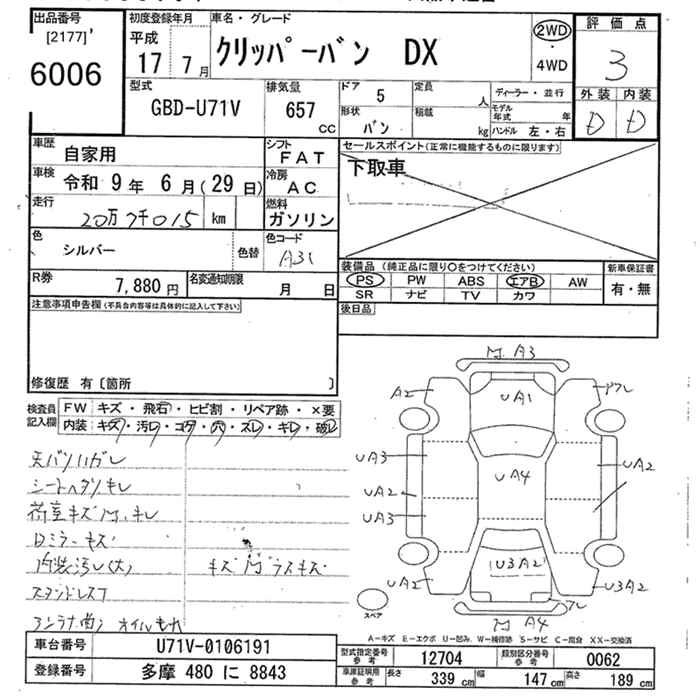 出品番号
[2177]'
6006
初度登録年月
平成
17 7月
車名・グレード
クリッパーバン DX
2WD
4WD
評価点
3
外装 内装
D D
型式
GBD-U71V
排気量
657 cc
ドア
5
形状
バン
定員
人
積載
kg
ディーラー・並行
モデル年式 年
ハンドル 左・右
車歴
自家用
車検
令和 9年 6月(29日)
走行
20万7千015 km
色
シルバー
色替
シフト
FAT
冷房
AC
燃料
ガソリン
色コード
A31
R券
7,880円
名変通知期限
月 日
セールスポイント(正常に機能するものに限ります)
下取車
装備品(純正品に限り〇をつけてください)
PS PW ABS エアB AW
SR ナビ TV カワ
新車保証書
有・無
後日品
注意事項申告欄(不具合内容等は具体的に記入して下さい)
修復歴 有〔箇所 〕
検査員記入欄
FW キズ・飛石・ヒビ割・リペア跡・×要
内装:キズ・汚レ・コゲ・穴・スレ・キレ・破レ
天バリハガレ
シートヘタリキレ
荷室キズ凹キレ
Dミラーキズ
内装汚レ(大)
キズ凹ラスキズ
A3
A2
UA1
UA3
UA2
UA2
UA4
UA3
UA2
U3A2
U3A2
A4
スペア
A-キズ E-エクボ U-凹み W-補修跡 S-サビ C-腐食 XX-交換済
車台番号
U71V-0106191
登録番号
多摩 480 に 8843
型式指定番号 参考
12704
類別区分番号 参考
0062
車庫証明用 参考
長さ 339 cm
幅 147 cm
高さ 189 cm